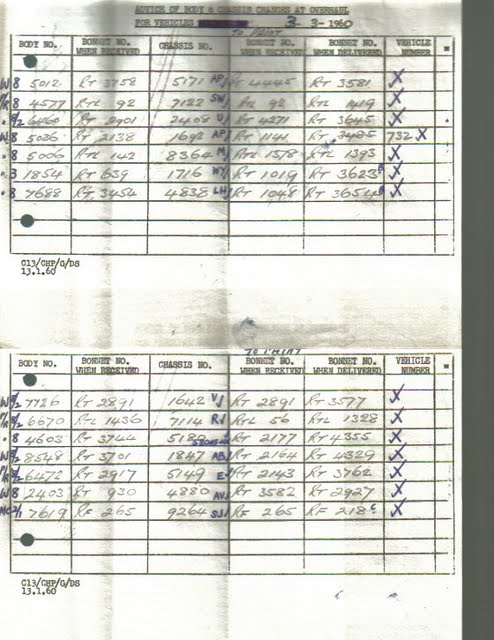 ADVICE OF BODY & CHASSIS CHANGES AT OVERHAUL
FOR VEHICLES 3-3-1960
TO PAINT
BODY NO. BONNET NO. WHEN RECEIVED CHASSIS NO. BONNET NO. WHEN RECEIVED BONNET NO. WHEN DELIVERED VEHICLE NUMBER
W 8 5012 RT 3758 5171 AP/ RT 4445 RT 3581 X
P/R 8 4577 RTL 92 7122 SW/ RTL 92 RTL 1419 X
8/2 6460 RT 2901 2408 U/ RT 4271 RT 3645 X
W 8 5036 RT 2138 1692 AP/ RT 1141 RT 3485 732 X
8 5006 RTL 142 8364 M/ RTL 1578 RTL 1393 X
3 1854 RT 639 1716 WY/ RT 1019 RT 3623 X
8 7688 RT 3454 4838 LH/ RT 1048 RT 3654 X
C13/CHP/G/DS
13.1.60
TO PAINT
BODY NO. BONNET NO. WHEN RECEIVED CHASSIS NO. BONNET NO. WHEN RECEIVED BONNET NO. WHEN DELIVERED VEHICLE NUMBER
W 8/2 7726 RT 2891 1642 V/ RT 2891 RT 3577 X
P/R 8/2 6670 RTL 1436 7114 RV/ RTL 56 RTL 1328 X
8 4603 RT 3744 RT 2177 RT 4355 X
W 8/2 8548 RT 3701 1847 AB/ RT 2164 RT 4329 X
P/R 8/2 6472 RT 2917 5149 E/ RT 2143 RT 3762 X
W 8 2403 RT 930 4880 AV/ RT 3582 RT 2927 X
NC 2/1 7619 RF 265 9264 SJ/ RF 265 RF 218 C X
C13/CHP/G/DS
13.1.60